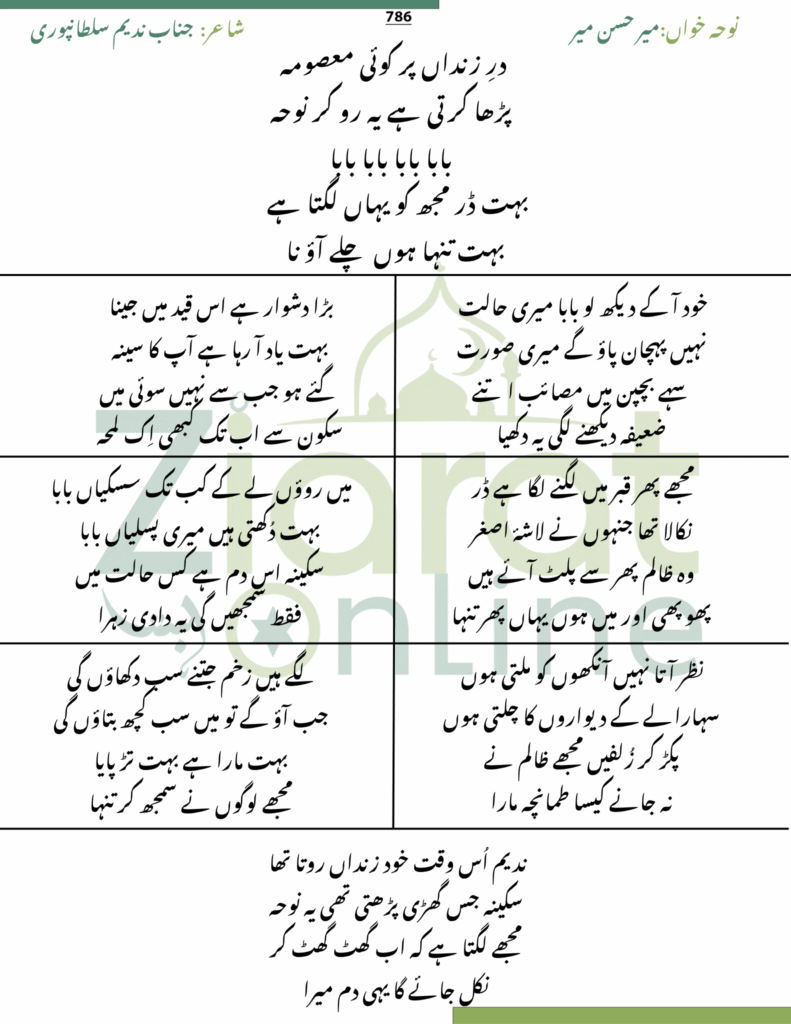 786
نوحہ خواں:میر حسن میر
شاعر: جناب ندیم سلطانپوری
درِ زنداں پر کوئی معصومہ
پڑھا کرتی ہے یہ رو کر نوحہ
بابا بابا بابا بابا
بہت ڈر مجھ کو یہاں لگتا ہے
بہت تنہا ہوں چلے آؤ نا
خود آ کے دیکھ لو بابا میری حالت
نہیں پہچان پاؤ گے میری صورت
سہے بچپن میں مصائب اتنے
ضعیفہ دیکھنے لگی یہ دکھیا
بڑا دشوار ہے اس قید میں جینا
بہت یاد آ رہا ہے آپ کا سینہ
گئے ہو جب سے نہیں سوئی میں
سکون سے اب تک کبھی اِک لمحہ
مجھے پھر قبر میں لگنے لگا ہے ڈر
نکالا تھا جنہوں نے لاشۂ اصغر
وہ ظالم پھر سے پلٹ آئے ہیں
پھوپھی اور میں ہوں یہاں پھر تنہا
میں روؤں لے کے کب تک سسکیاں بابا
بہت دُکھتی ہیں میری پسلیاں بابا
سکینہ اس دم ہے کس حالت میں
فقط سمجھیں گی یہ دادی زہرا
نظر آتا نہیں آنکھوں کو ملتی ہوں
سہارا لے کے دیواروں کا چلتی ہوں
پکڑ کر زُلفیں مجھے ظالم نے
نہ جانے کیسا طمانچہ مارا
لگے ہیں زخم جتنے سب دکھاؤں گی
جب آؤ گے تو میں سب کچھ بتاؤں گی
بہت مارا ہے بہت تڑپایا
مجھے لوگوں نے سمجھ کر تنہا
ندیم اُس وقت خود زنداں روتا تھا
سکینہ جس گھڑی پڑھتی تھی یہ نوحہ
مجھے لگتا ہے کہ اب گھٹ گھٹ کر
نکل جائے گا یہی دم میرا
Ziarat
OnLine